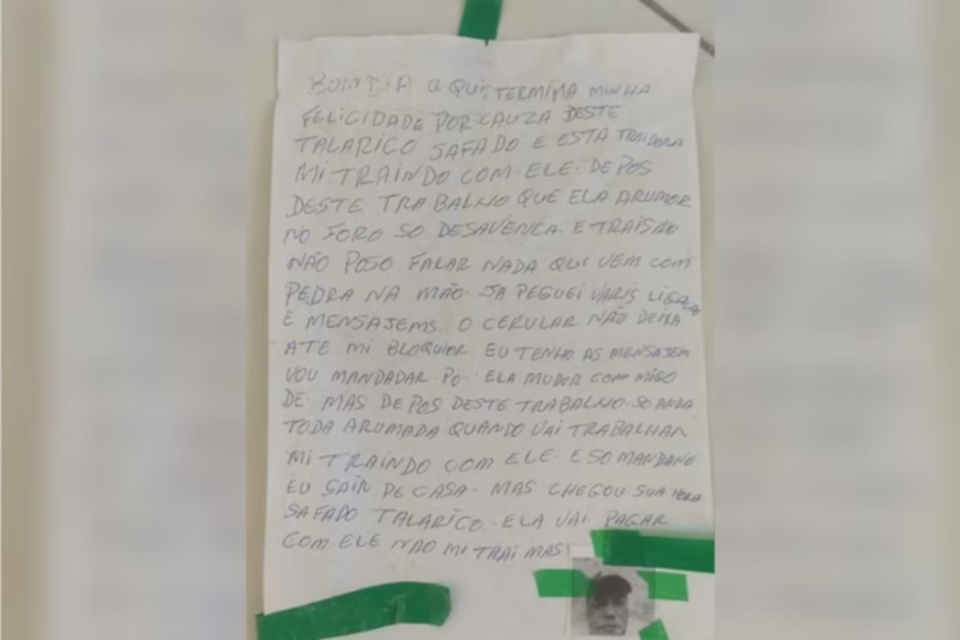 BOM DIA A QUI TERMINA MINHA
FELICIDADE POR CAUZA DESTE
TALARICO SAFADO E ESTA TRAIDORA
MI TRAINDO COM ELE. DEPOS
DESTE TRABALHO QUE ELA ARUMOR
NO FORO SO DESAVENCA. E TRAISÃO
NÃO POSO FALAR NADA QUI VEM COM
PEDRA NA MÃO. JA PEGUEI VARIS
E MENSAJEMS. O CERULAR NÃO DEIXA
ATE MI BLOQUIOR EU TENHO AS MENSAJEM
VOU MANDADAR. PO. ELA MUDOR COM MIGO
DE. MAS DEPOS DESTE TRABALHO. SO ANDA
TODA ARUMADA QUANDO VAI TRABALHAR
MI TRAINDO COM ELE. E SO MANDANO
EU SAIR DE CASA. MAS CHEGOU SUA HORA
SAFADO TALARICO. ELA VAI PAGAR
COM ELE NÃO MI TRAI MAS